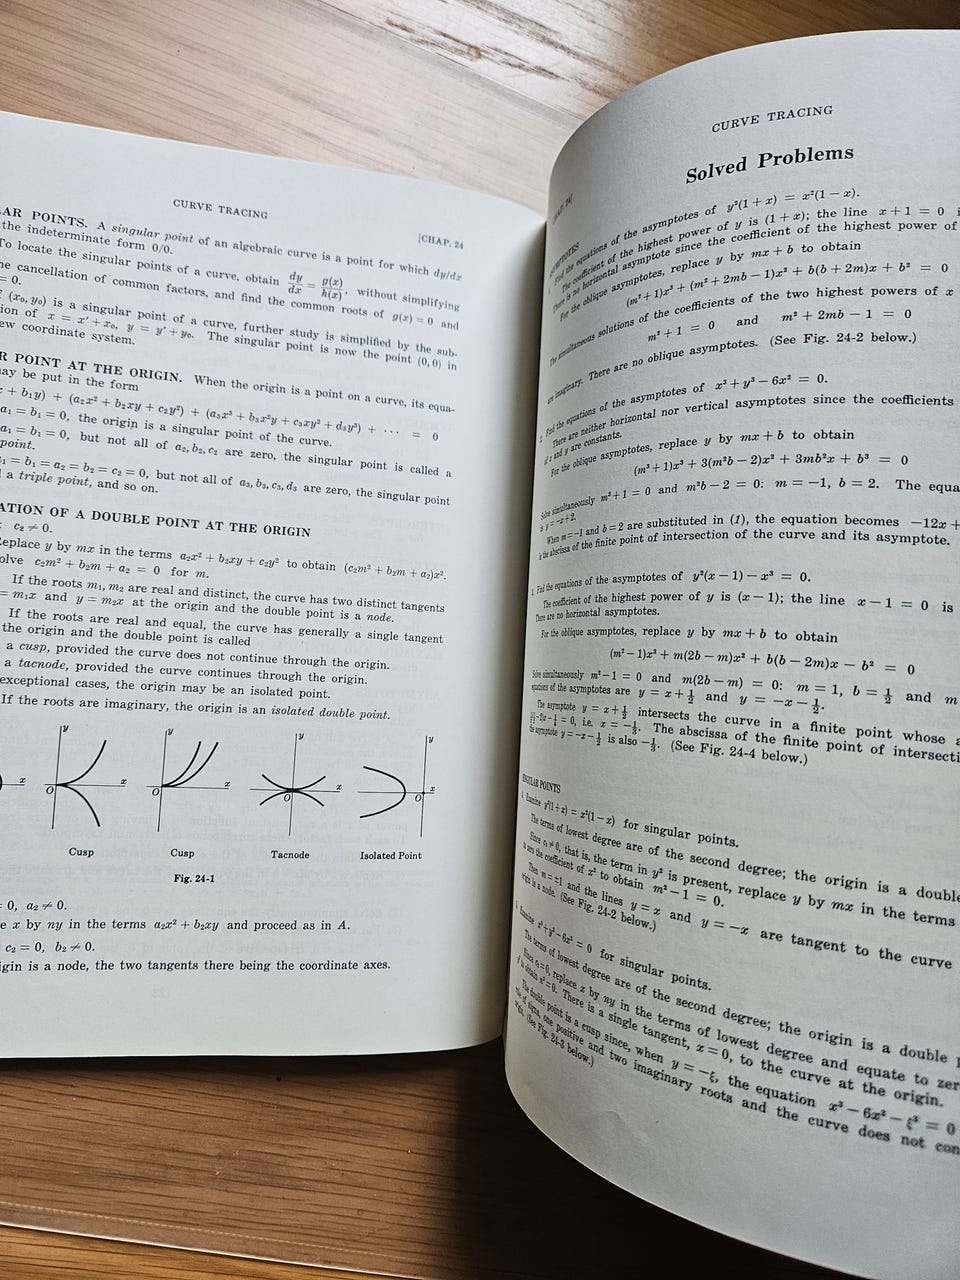 CURVE TRACING
[CHAP. 24
AR POINTS. A singular point of an algebraic curve is a point for which dy/dx
the indeterminate form 0/0.
To locate the singular points of a curve, obtain dy/dx = g(x)/h(x), without simplifying
he cancellation of common factors, and find the common roots of g(x) = 0 and
= 0.
(x₀, y₀) is a singular point of a curve, further study is simplified by the sub-
ion of x = x′ + x₀, y = y′ + y₀. The singular point is now the point (0, 0) in
ew coordinate system.
R POINT AT THE ORIGIN. When the origin is a point on a curve, its equa-
may be put in the form
+ b₁y) + (a₂x² + b₂xy + c₂y²) + (a₃x³ + b₃x²y + c₃xy² + d₃y³) + ··· = 0
a₁ = b₁ = 0, the origin is a singular point of the curve.
a₁ = b₁ = 0, but not all of a₂, b₂, c₂ are zero, the singular point is called a
point.
₁ = b₁ = a₂ = b₂ = c₂ = 0, but not all of a₃, b₃, c₃, d₃ are zero, the singular point
a triple point, and so on.
ATION OF A DOUBLE POINT AT THE ORIGIN
c₂ ≠ 0.
eplace y by mx in the terms a₂x² + b₂xy + c₂y² to obtain (c₂m² + b₂m + a₂)x².
olve c₂m² + b₂m + a₂ = 0 for m.
If the roots m₁, m₂ are real and distinct, the curve has two distinct tangents
= m₁x and y = m₂x at the origin and the double point is a node.
If the roots are real and equal, the curve has generally a single tangent
the origin and the double point is called
a cusp, provided the curve does not continue through the origin.
a tacnode, provided the curve continues through the origin.
exceptional cases, the origin may be an isolated point.
If the roots are imaginary, the origin is an isolated double point.
y y y y
x O x O x O x O x
Cusp Cusp Tacnode Isolated Point
Fig. 24-1
= 0, a₂ ≠ 0.
e x by ny in the terms a₂x² + b₂xy and proceed as in A.
c₂ = 0, b₂ ≠ 0.
igin is a node, the two tangents there being the coordinate axes.
CURVE TRACING
Solved Problems
Find the equations of the asymptotes of y²(1 + x) = x²(1 − x).
The coefficient of the highest power of y is (1 + x); the line x + 1 = 0
There is no horizontal asymptote since the coefficient of the highest power of
For the oblique asymptotes, replace y by mx + b to obtain
(m² + 1)x³ + (m² + 2mb − 1)x² + b(b + 2m)x + b² = 0
The simultaneous solutions of the coefficients of the two highest powers of x
m² + 1 = 0 and m² + 2mb − 1 = 0
are imaginary. There are no oblique asymptotes. (See Fig. 24-2 below.)
2. Find the equations of the asymptotes of x³ + y³ − 6x² = 0.
There are neither horizontal nor vertical asymptotes since the coefficients
of x and y are constants.
For the oblique asymptotes, replace y by mx + b to obtain
(m³ + 1)x³ + 3(m²b − 2)x² + 3mb²x + b³ = 0
Solve simultaneously m³ + 1 = 0 and m²b − 2 = 0: m = −1, b = 2. The equa
is y = −x + 2.
When m = −1 and b = 2 are substituted in (1), the equation becomes −12x +
is the abscissa of the finite point of intersection of the curve and its asymptote.
Find the equations of the asymptotes of y²(x − 1) − x³ = 0.
The coefficient of the highest power of y is (x − 1); the line x − 1 = 0 is
There are no horizontal asymptotes.
For the oblique asymptotes, replace y by mx + b to obtain
(m² − 1)x³ + m(2b − m)x² + b(b − 2m)x − b² = 0
Solve simultaneously m² − 1 = 0 and m(2b − m) = 0: m = 1, b = ½ and m
equations of the asymptotes are y = x + ½ and y = −x − ½.
The asymptote y = x + ½ intersects the curve in a finite point whose a
= 0, i.e. x = −⅓. The abscissa of the finite point of intersecti
the asymptote y = −x − ½ is also −⅓. (See Fig. 24-4 below.)
SINGULAR POINTS
Examine y²(1 + x) = x²(1 − x) for singular points.
The terms of lowest degree are of the second degree; the origin is a double
Since c₂ ≠ 0, that is, the term in y² is present, replace y by mx in the terms
to zero the coefficient of x² to obtain m² − 1 = 0.
Then m = ±1 and the lines y = x and y = −x are tangent to the curve
origin is a node. (See Fig. 24-2 below.)
Examine x³ + y³ − 6x² = 0 for singular points.
The terms of lowest degree are of the second degree; the origin is a double p
Since c₂ = 0, replace x by ny in the terms of lowest degree and equate to zer
y² to obtain n² = 0. There is a single tangent, x = 0, to the curve at the origin.
The double point is a cusp since, when y = −ξ, the equation x³ − 6x² − ξ³ = 0
of signs, one positive and two imaginary roots and the curve does not con
origin. (See Fig. 24-3 below.)